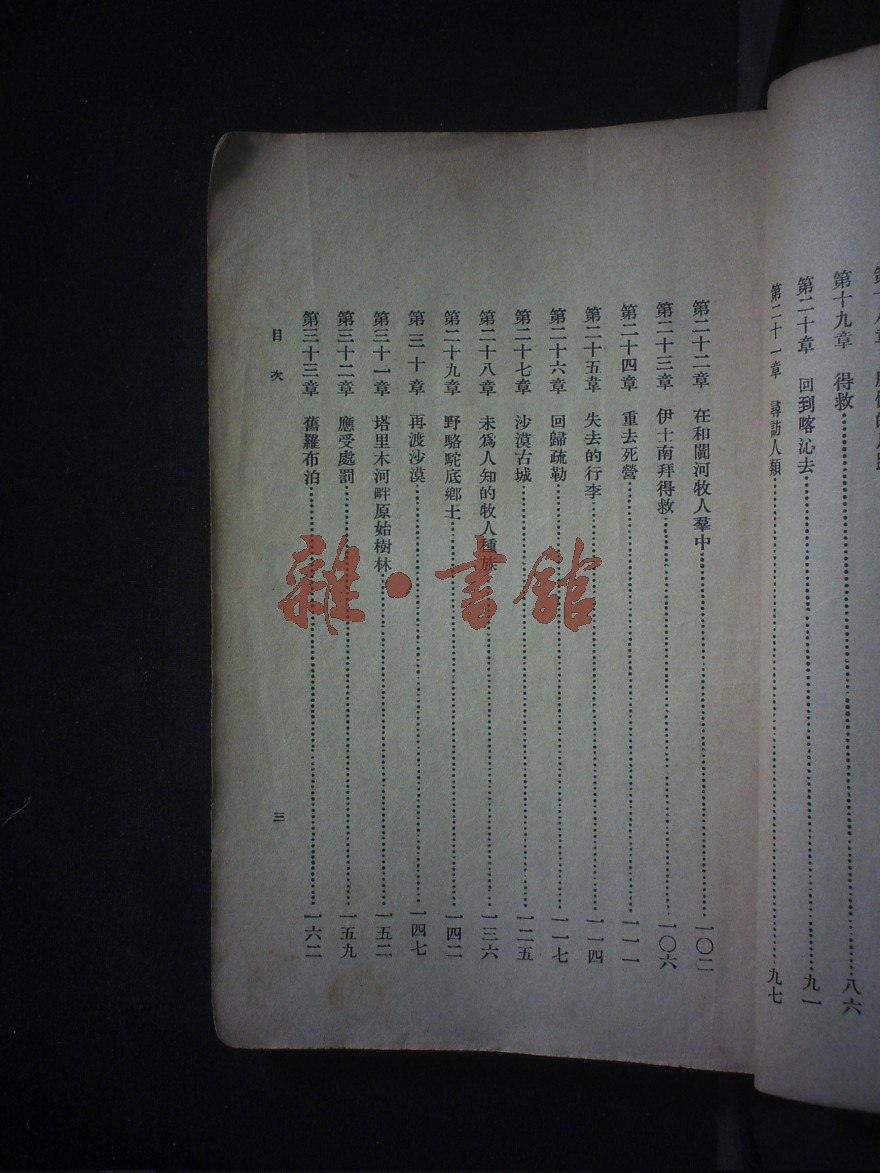 第十九章　得救……八六
第二十章　回到喀沁去……九一
第二十一章　尋訪人類……九七
第二十二章　在和闐河牧人羣中……一〇二
第二十三章　伊士南拜得救……一〇六
第二十四章　重去死營……一一一
第二十五章　失去的行李……一一四
第二十六章　回歸疏勒……一一七
第二十七章　沙漠古城……一二五
第二十八章　未爲人知的牧人種族……一三六
第二十九章　野駱駝底鄉土……一四二
第三十章　再渡沙漠……一四七
第三十一章　塔里木河畔原始樹林……一五二
第三十二章　應受處罰……一五九
第三十三章　舊羅布泊……一六二
目次
三
雜·書館